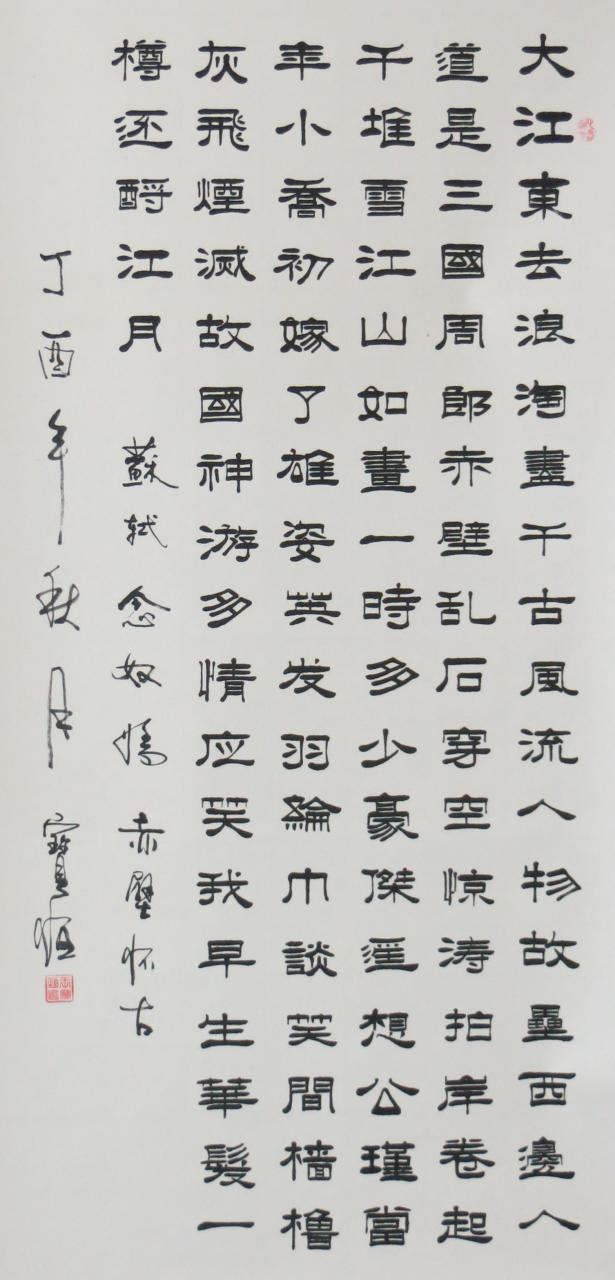 大江東去浪淘盡千古風流人物故壘西邊人
道是三國周郎赤壁乱石穿空惊涛拍岸卷起
千堆雪江山如畫一時多少豪傑遥想公瑾當
年小喬初嫁了雄姿英发羽綸巾談笑間檣櫓
灰飛煙滅故國神游多情应笑我早生華髮一
樽还酹江月 蘇軾 念奴嬌 赤壁怀古
丁酉年秋月